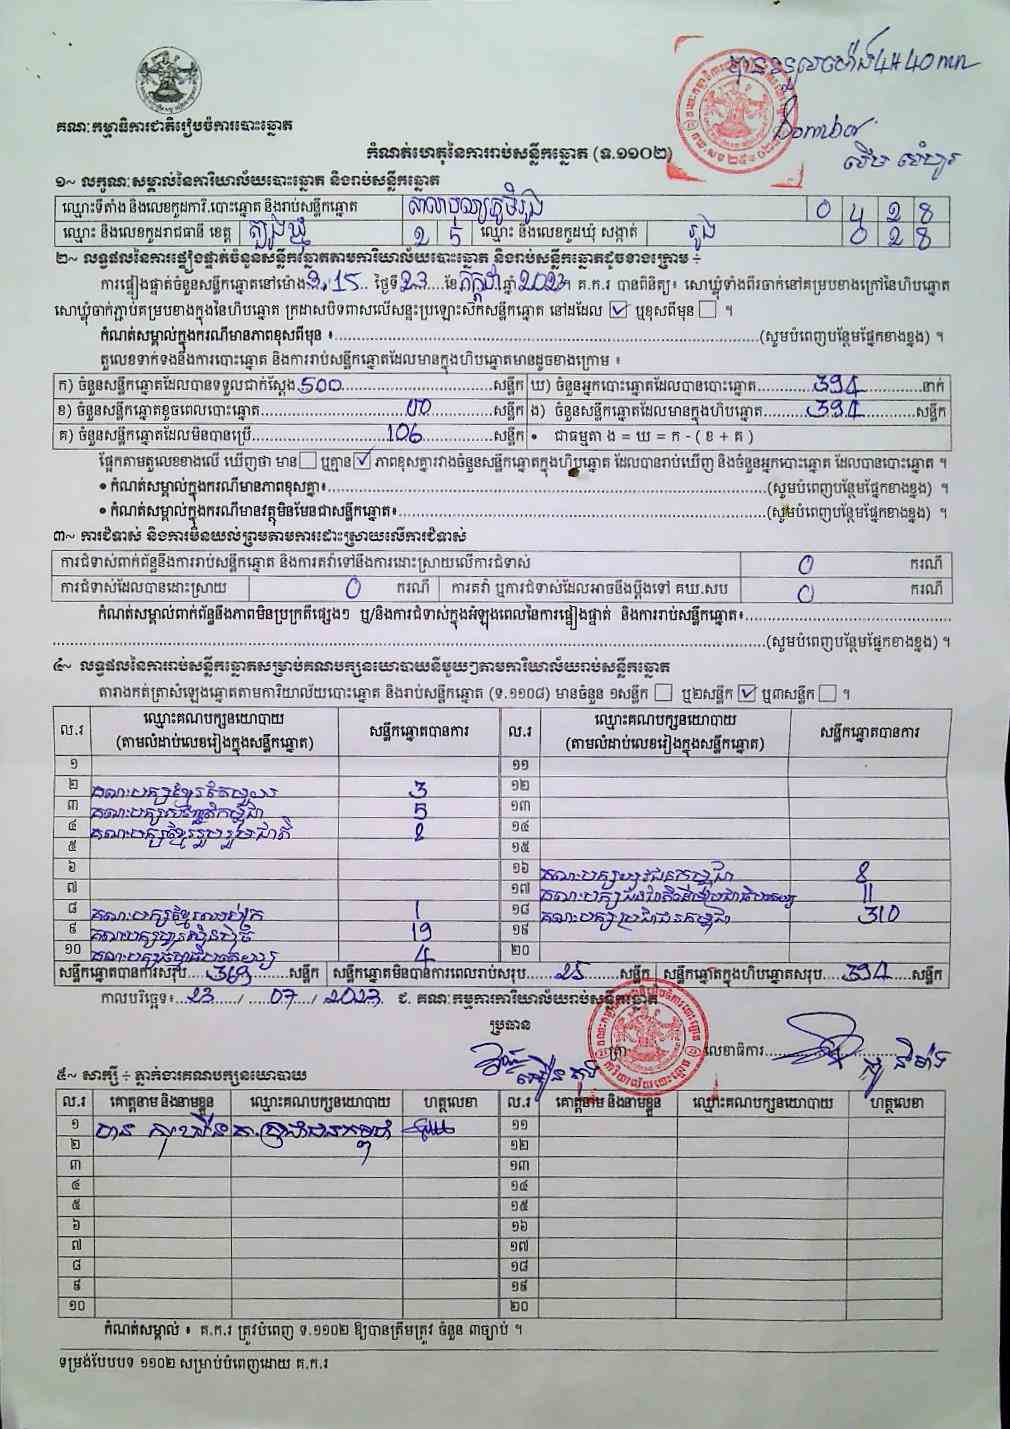 បានទទួលម៉ោង 4H 40mn
គណៈកម្មាធិការជាតិរៀបចំការបោះឆ្នោត
កំណត់ហេតុនៃការរាប់សន្លឹកឆ្នោត (ទ.១១០២)
១~ លក្ខណៈសម្គាល់នៃការិយាល័យបោះឆ្នោត និងរាប់សន្លឹកឆ្នោត
ឈ្មោះទីតាំង និងលេខកូដការិ.បោះឆ្នោត និងរាប់សន្លឹកឆ្នោត សាលាបុណ្យភូមិរូង 0 4 2 8
ឈ្មោះ និងលេខកូដរាជធានី ខេត្ត ត្បូងឃ្មុំ 2 5 ឈ្មោះ និងលេខកូដឃុំ សង្កាត់ រូង 0 2 8
២~ លទ្ធផលនៃការផ្ទៀងផ្ទាត់ចំនួនសន្លឹកឆ្នោតតាមការិយាល័យបោះឆ្នោត និងរាប់សន្លឹកឆ្នោតដូចខាងក្រោម ÷
ការផ្ទៀងផ្ទាត់ចំនួនសន្លឹកឆ្នោតនៅម៉ោង 3:15 ថ្ងៃទី 23 ខែ កក្កដា ឆ្នាំ 2023។ គ.ក.រ បានពិនិត្យ៖ សោឃ្លុំទាំងពីរចាក់នៅគម្របខាងក្រៅនៃហិបឆ្នោត
សោឃ្លុំចាក់ភ្ជាប់គម្របខាងក្នុងនៃហិបឆ្នោត ក្រដាសបិទពាសលើសន្ទះប្រឡោះសិកសន្លឹកឆ្នោត នៅដដែល ☑ ឬខុសពីមុន ☐ ។
កំណត់សម្គាល់ក្នុងករណីមានភាពខុសពីមុន ៖ (សូមបំពេញបន្ថែមផ្នែកខាងខ្នង) ។
តួលេខទាក់ទងនឹងការបោះឆ្នោត និងការរាប់សន្លឹកឆ្នោតដែលមានក្នុងហិបឆ្នោតមានដូចខាងក្រោម ៖
ក) ចំនួនសន្លឹកឆ្នោតដែលបានទទួលជាក់ស្តែង 500 សន្លឹក ឃ) ចំនួនអ្នកបោះឆ្នោតដែលបានបោះឆ្នោត 394 នាក់
ខ) ចំនួនសន្លឹកឆ្នោតខូចពេលបោះឆ្នោត 00 សន្លឹក ង) ចំនួនសន្លឹកឆ្នោតដែលមានក្នុងហិបឆ្នោត 394 សន្លឹក
គ) ចំនួនសន្លឹកឆ្នោតដែលមិនបានប្រើ 106 សន្លឹក • ជាធម្មតា ង = ឃ = ក - ( ខ + គ )
ផ្អែកតាមតួលេខខាងលើ ឃើញថា មាន ☐ ឬគ្មាន ☑ ភាពខុសគ្នារវាងចំនួនសន្លឹកឆ្នោតក្នុងហិបឆ្នោត ដែលបានរាប់ឃើញ និងចំនួនអ្នកបោះឆ្នោត ដែលបានបោះឆ្នោត ។
• កំណត់សម្គាល់ក្នុងករណីមានភាពខុសគ្នា៖ (សូមបំពេញបន្ថែមផ្នែកខាងខ្នង) ។
• កំណត់សម្គាល់ក្នុងករណីមានវត្ថុមិនមែនជាសន្លឹកឆ្នោត៖ (សូមបំពេញបន្ថែមផ្នែកខាងខ្នង) ។
៣~ ការជំទាស់ និងការមិនយល់ព្រមតាមការដោះស្រាយលើការជំទាស់
ការជំទាស់ពាក់ព័ន្ធនឹងការរាប់សន្លឹកឆ្នោត និងការតវ៉ាទៅនឹងការដោះស្រាយលើការជំទាស់ 0 ករណី
ការជំទាស់ដែលបានដោះស្រាយ 0 ករណី ការតវ៉ា ឬការជំទាស់ដែលអាចនឹងប្តឹងទៅ គឃ.សប 0 ករណី
កំណត់សម្គាល់ពាក់ព័ន្ធនឹងភាពមិនប្រក្រតីផ្សេងៗ ឬ/និងការជំទាស់ក្នុងអំឡុងពេលនៃការផ្ទៀងផ្ទាត់ និងការរាប់សន្លឹកឆ្នោត៖
(សូមបំពេញបន្ថែមផ្នែកខាងខ្នង) ។
៤~ លទ្ធផលនៃការរាប់សន្លឹកឆ្នោតសម្រាប់គណបក្សនយោបាយនីមួយៗតាមការិយាល័យរាប់សន្លឹកឆ្នោត
តារាងកត់ត្រាសំឡេងឆ្នោតតាមការិយាល័យបោះឆ្នោត និងរាប់សន្លឹកឆ្នោត (ទ.១១០៨) មានចំនួន ១សន្លឹក ☐ ឬ២សន្លឹក ☑ ឬ៣សន្លឹក ☐ ។
ល.រ ឈ្មោះគណបក្សនយោបាយ (តាមលំដាប់លេខរៀងក្នុងសន្លឹកឆ្នោត) សន្លឹកឆ្នោតបានការ ល.រ ឈ្មោះគណបក្សនយោបាយ (តាមលំដាប់លេខរៀងក្នុងសន្លឹកឆ្នោត) សន្លឹកឆ្នោតបានការ
១ ១១
២ គណបក្សខ្មែរតែមួយ 3 ១២
៣ គណបក្សសញ្ជាតិកម្ពុជា 5 ១៣
៤ គណបក្សខ្មែររួបរួមជាតិ 2 ១៤
៥ ១៥
៦ ១៦ គណបក្សយុវជនកម្ពុជា 8
៧ ១៧ 11
៨ គណបក្សខ្មែរឈប់ក្រ 1 ១៨ គណបក្សប្រជាជនកម្ពុជា 310
៩ គណបក្សហ៊្វុនស៊ិនប៉ិច 19 ១៩
១០ គណបក្សធម្មាធិបតេយ្យ 4 ២០
សន្លឹកឆ្នោតបានការសរុប 369 សន្លឹក សន្លឹកឆ្នោតមិនបានការពេលរាប់សរុប 25 សន្លឹក សន្លឹកឆ្នោតក្នុងហិបឆ្នោតសរុប 394 សន្លឹក
កាលបរិច្ឆេទ៖ 23 / 07 / 2023 ជ. គណៈកម្មការការិយាល័យរាប់សន្លឹកឆ្នោត
ប្រធាន
ត្រា លេខាធិការ
៥~ សាក្សី ÷ ភ្នាក់ងារគណបក្សនយោបាយ
ល.រ គោត្តនាម និងនាមខ្លួន ឈ្មោះគណបក្សនយោបាយ ហត្ថលេខា ល.រ គោត្តនាម និងនាមខ្លួន ឈ្មោះគណបក្សនយោបាយ ហត្ថលេខា
១ គ.ប្រជាជនកម្ពុជា ១១
២ ១២
៣ ១៣
៤ ១៤
៥ ១៥
៦ ១៦
៧ ១៧
៨ ១៨
៩ ១៩
១០ ២០
កំណត់សម្គាល់ ៖ គ.ក.រ ត្រូវបំពេញ ទ.១១០២ ឱ្យបានត្រឹមត្រូវ ចំនួន ៣ច្បាប់ ។
ទម្រង់បែបបទ ១១០២ សម្រាប់បំពេញដោយ គ.ក.រ